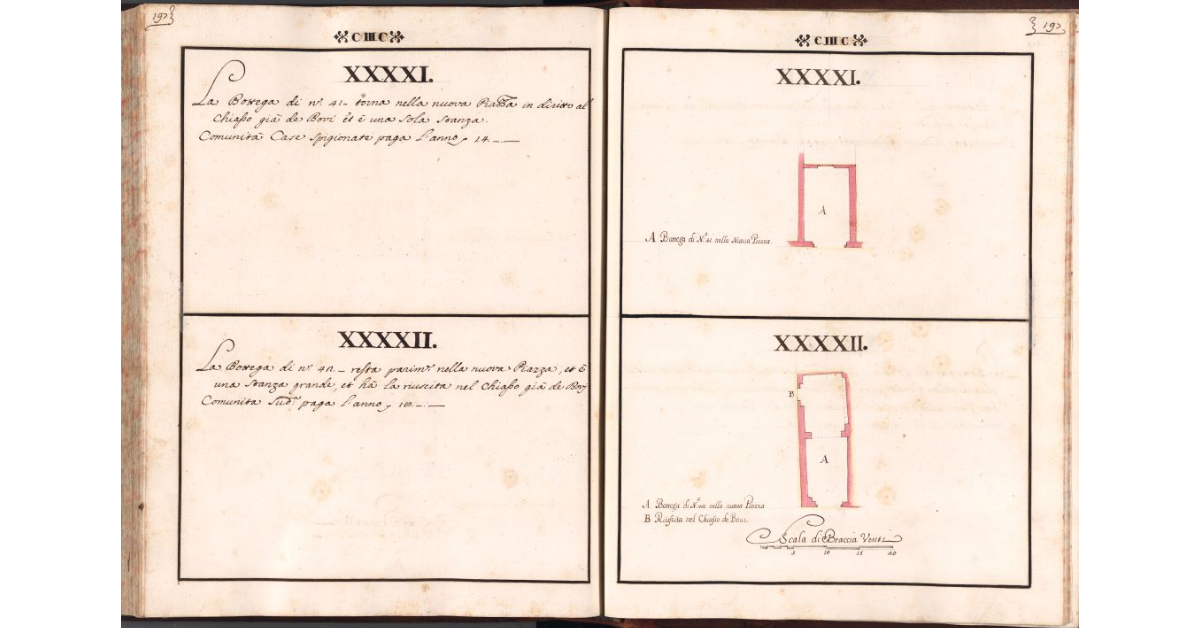 197
C III C
XXXXI.
La Bottega di nº 41 - torna nella nuova Piazza in diritto al
Chiasso già de Bovi et è una sola stanza.
Comunità Case spigionate paga l'anno 14.-.-
XXXXII.
La Bottega di nº 42 - resta parimᵗᵉ nella nuova Piazza, et è
una stanza grande, et hà la riuscita nel Chiasso già de Bovi
Comunità Sudᵃ paga l'anno
197
C III C
XXXXI.
A
A Bottega di Nº 41 nella Nuova Piazza
XXXXII.
B
A
A Bottega di Nº 42 nella nuova Piazza
B Riuscita nel Chiasso de Bovi
Scala di Braccia Venti
5 10 15 20